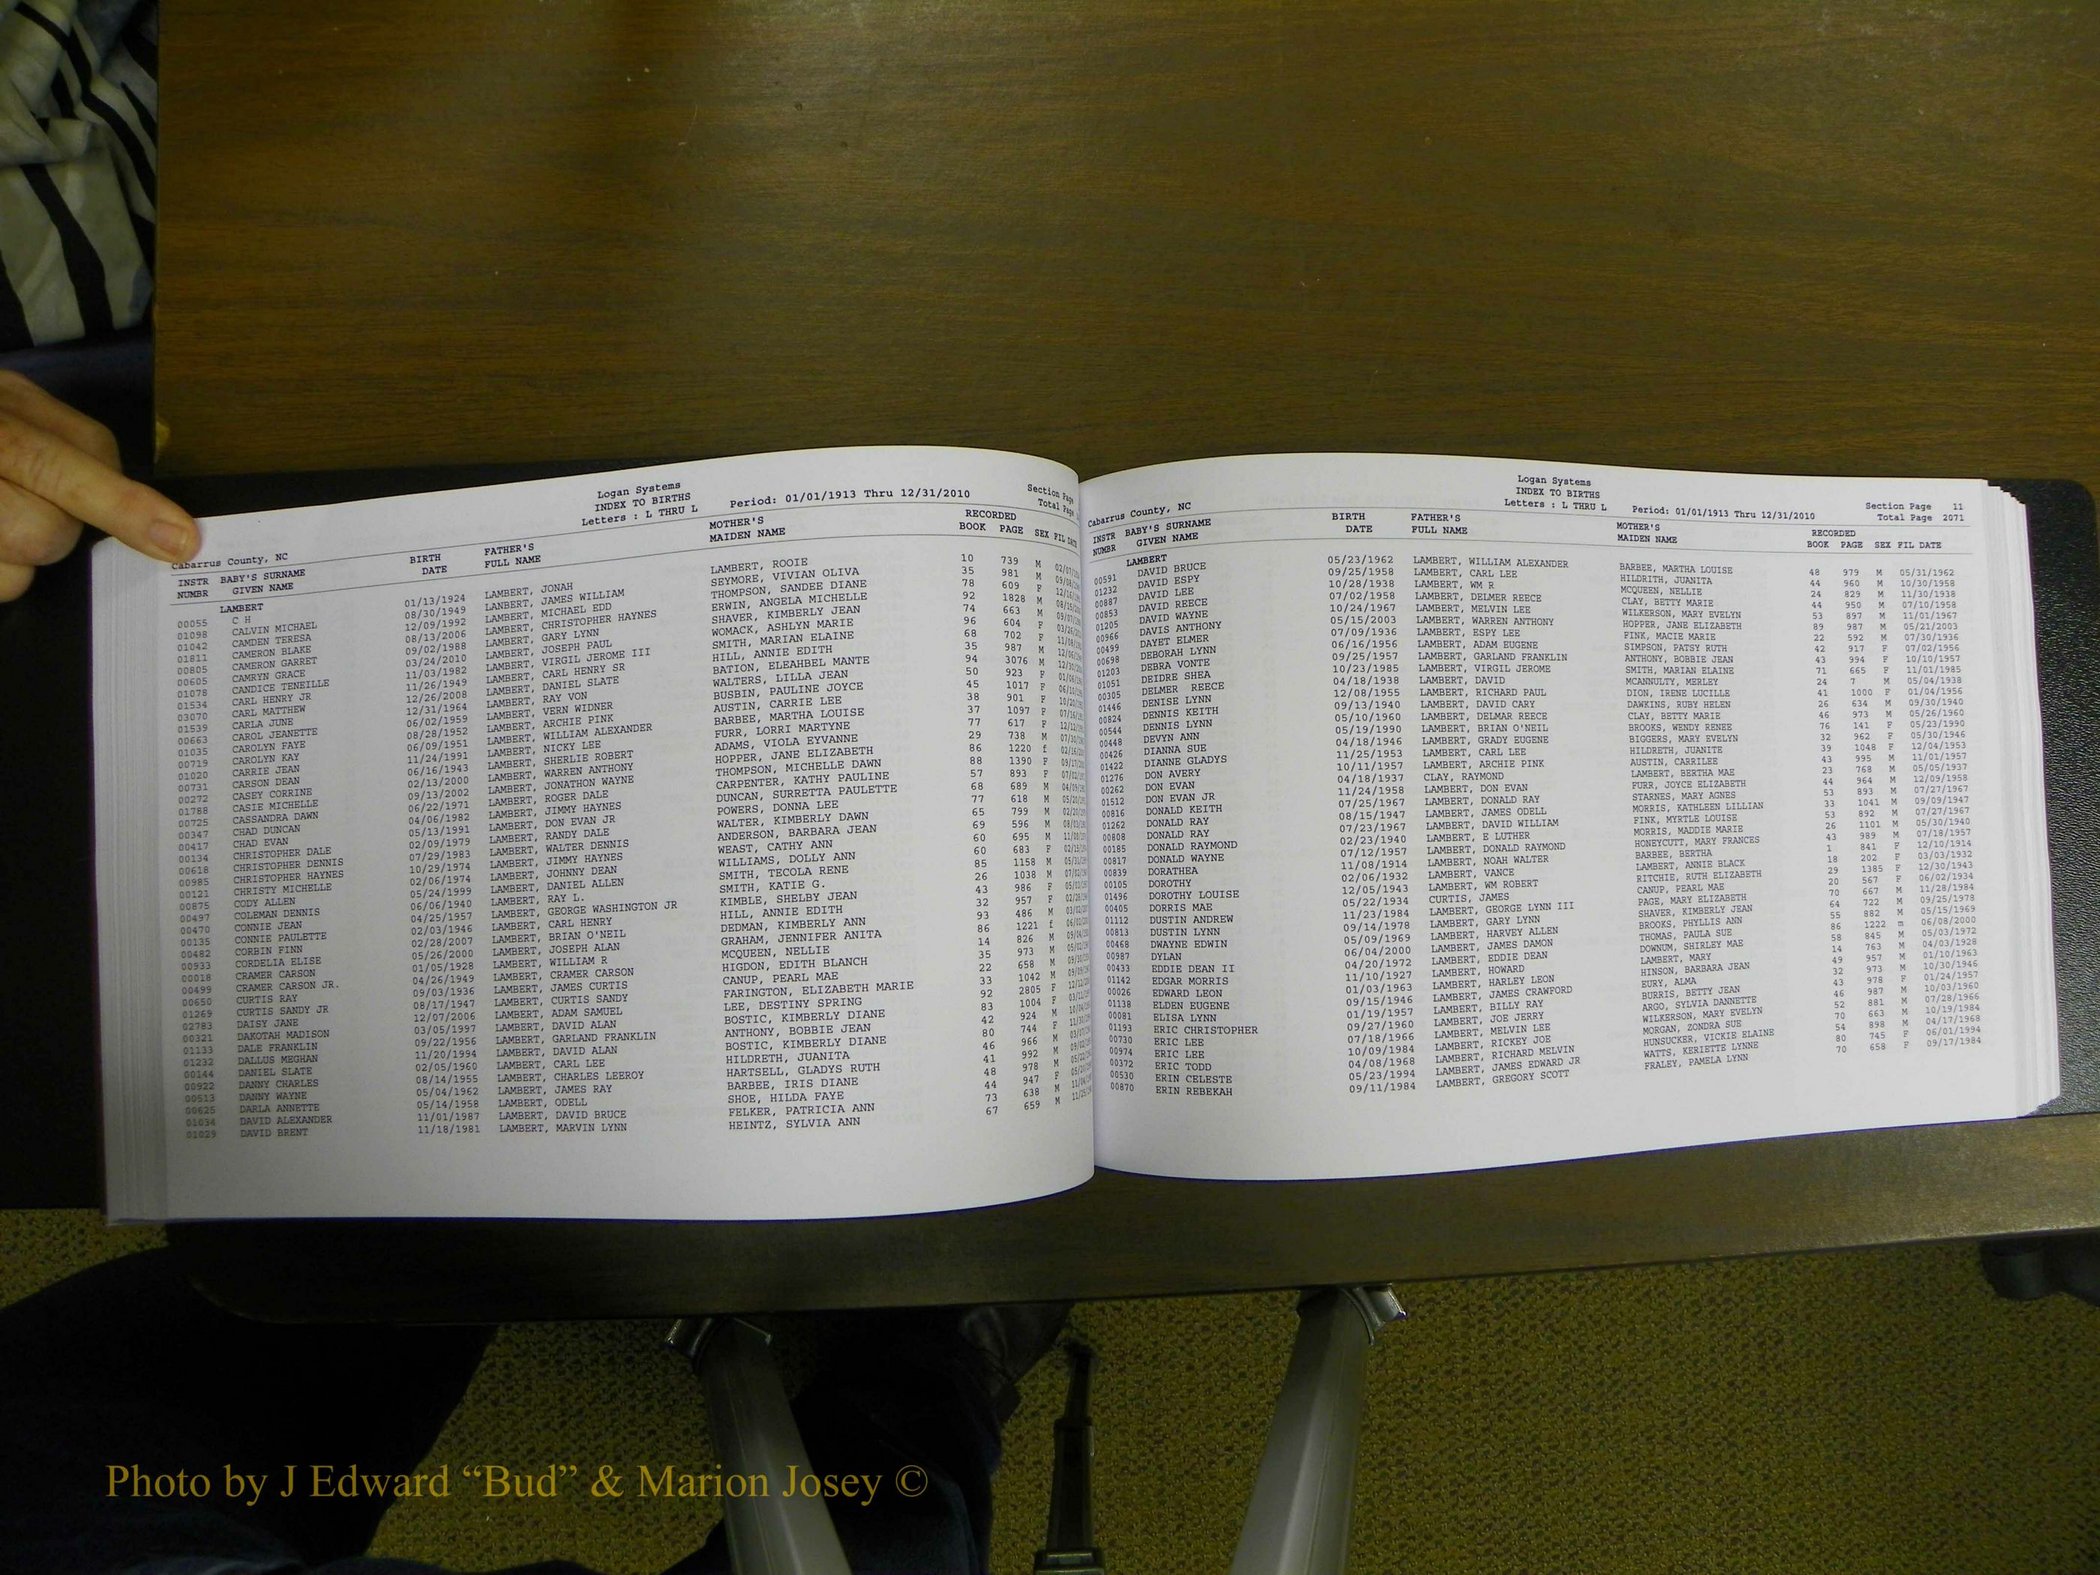 Logan Systems
INDEX TO BIRTHS
Letters : L THRU L
Period: 01/01/1913 Thru 12/31/2010
Section Page
Total Page
Cabarrus County, NC
INSTR NUMBR
BABY'S SURNAME GIVEN NAME
BIRTH DATE
FATHER'S FULL NAME
MOTHER'S MAIDEN NAME
RECORDED
BOOK PAGE SEX FIL DATE
LAMBERT
00055 C H 01/13/1924 LAMBERT, JONAH LAMBERT, ROOIE 10 739 M
01098 CALVIN MICHAEL 08/30/1949 LANBERT, JAMES WILLIAM SEYMORE, VIVIAN OLIVA 35 981 M
01042 CAMDEN TERESA 12/09/1992 LAMBERT, MICHAEL EDD THOMPSON, SANDEE DIANE 78 609 F
01811 CAMERON BLAKE 08/13/2006 LAMBERT, CHRISTOPHER HAYNES ERWIN, ANGELA MICHELLE 92 1828 M
00805 CAMERON GARRET 09/02/1988 LAMBERT, GARY LYNN SHAVER, KIMBERLY JEAN 74 663 M
00605 CAMRYN GRACE 03/24/2010 LAMBERT, JOSEPH PAUL WOMACK, ASHLYN MARIE 96 604 F
01078 CANDICE TENEILLE 11/03/1982 LAMBERT, VIRGIL JEROME III SMITH, MARIAN ELAINE 68 702 F
01534 CARL HENRY JR 11/26/1949 LAMBERT, CARL HENRY SR HILL, ANNIE EDITH 35 987 M
03070 CARL MATTHEW 12/26/2008 LAMBERT, DANIEL SLATE BATION, ELEAHBEL MANTE 94 3076 M
01539 CARLA JUNE 12/31/1964 LAMBERT, RAY VON WALTERS, LILLA JEAN 50 923 F
00663 CAROL JEANETTE 06/02/1959 LAMBERT, VERN WIDNER BUSBIN, PAULINE JOYCE 45 1017 F
01035 CAROLYN FAYE 08/28/1952 LAMBERT, ARCHIE PINK AUSTIN, CARRIE LEE 38 901 F
00719 CAROLYN KAY 06/09/1951 LAMBERT, WILLIAM ALEXANDER BARBEE, MARTHA LOUISE 37 1097 F
01020 CARRIE JEAN 11/24/1991 LAMBERT, NICKY LEE FURR, LORRI MARTYNE 77 617 F
00731 CARSON DEAN 06/16/1943 LAMBERT, SHERLIE ROBERT ADAMS, VIOLA EYVANNE 29 738 M
00272 CASEY CORRINE 02/13/2000 LAMBERT, WARREN ANTHONY HOPPER, JANE ELIZABETH 86 1220 f
01788 CASIE MICHELLE 09/13/2002 LAMBERT, JONATHON WAYNE THOMPSON, MICHELLE DAWN 88 1390 F
00725 CASSANDRA DAWN 06/22/1971 LAMBERT, ROGER DALE CARPENTER, KATHY PAULINE 57 893 F
00347 CHAD DUNCAN 04/06/1982 LAMBERT, JIMMY HAYNES DUNCAN, SURRETTA PAULETTE 68 689 M
00417 CHAD EVAN 05/13/1991 LAMBERT, DON EVAN JR POWERS, DONNA LEE 77 618 M
00134 CHRISTOPHER DALE 02/09/1979 LAMBERT, RANDY DALE WALTER, KIMBERLY DAWN 65 799 M
00618 CHRISTOPHER DENNIS 07/29/1983 LAMBERT, WALTER DENNIS ANDERSON, BARBARA JEAN 69 596 M
00985 CHRISTOPHER HAYNES 10/29/1974 LAMBERT, JIMMY HAYNES WEAST, CATHY ANN 60 695 M
00121 CHRISTY MICHELLE 02/06/1974 LAMBERT, JOHNNY DEAN WILLIAMS, DOLLY ANN 60 683 F
00875 CODY ALLEN 05/24/1999 LAMBERT, DANIEL ALLEN SMITH, TECOLA RENE 85 1158 M
00497 COLEMAN DENNIS 06/06/1940 LAMBERT, RAY L. SMITH, KATIE G. 26 1038 M
00470 CONNIE JEAN 04/25/1957 LAMBERT, GEORGE WASHINGTON JR KIMBLE, SHELBY JEAN 43 986 F
00135 CONNIE PAULETTE 02/03/1946 LAMBERT, CARL HENRY HILL, ANNIE EDITH 32 957 F
00482 CORBIN FINN 02/28/2007 LAMBERT, BRIAN O'NEIL DEDMAN, KIMBERLY ANN 93 486 M
00933 CORDELIA ELISE 05/26/2000 LAMBERT, JOSEPH ALAN GRAHAM, JENNIFER ANITA 86 1221 f
00018 CRAMER CARSON 01/05/1928 LAMBERT, WILLIAM R MCQUEEN, NELLIE 14 826 M
00499 CRAMER CARSON JR. 04/26/1949 LAMBERT, CRAMER CARSON HIGDON, EDITH BLANCH 35 973 M
00650 CURTIS RAY 09/03/1936 LAMBERT, JAMES CURTIS CANUP, PEARL MAE 22 658 M
01269 CURTIS SANDY JR 08/17/1947 LAMBERT, CURTIS SANDY FARINGTON, ELIZABETH MARIE 33 1042 M
02783 DAISY JANE 12/07/2006 LAMBERT, ADAM SAMUEL LEE, DESTINY SPRING 92 2805 F
00321 DAKOTAH MADISON 03/05/1997 LAMBERT, DAVID ALAN BOSTIC, KIMBERLY DIANE 83 1004 F
01133 DALE FRANKLIN 09/22/1956 LAMBERT, GARLAND FRANKLIN ANTHONY, BOBBIE JEAN 42 924 M
01232 DALLUS MEGHAN 11/20/1994 LAMBERT, DAVID ALAN BOSTIC, KIMBERLY DIANE 80 744 F
00144 DANIEL SLATE 02/05/1960 LAMBERT, CARL LEE HILDRETH, JUANITA 46 966 M
00922 DANNY CHARLES 08/14/1955 LAMBERT, CHARLES LEEROY HARTSELL, GLADYS RUTH 41 992 M
00513 DANNY WAYNE 05/04/1962 LAMBERT, JAMES RAY BARBEE, IRIS DIANE 48 978 M
00625 DARLA ANNETTE 05/14/1958 LAMBERT, ODELL SHOE, HILDA FAYE 44 947 F
01034 DAVID ALEXANDER 11/01/1987 LAMBERT, DAVID BRUCE FELKER, PATRICIA ANN 73 638 M
01029 DAVID BRENT 11/18/1981 LAMBERT, MARVIN LYNN HEINTZ, SYLVIA ANN 67 659 M
Logan Systems
INDEX TO BIRTHS
Letters : L THRU L
Period: 01/01/1913 Thru 12/31/2010
Section Page 11
Total Page 2071
Cabarrus County, NC
INSTR NUMBR
BABY'S SURNAME GIVEN NAME
BIRTH DATE
FATHER'S FULL NAME
MOTHER'S MAIDEN NAME
RECORDED
BOOK PAGE SEX FIL DATE
LAMBERT
00591 DAVID BRUCE 05/23/1962 LAMBERT, WILLIAM ALEXANDER BARBEE, MARTHA LOUISE 48 979 M 05/31/1962
01232 DAVID ESPY 09/25/1958 LAMBERT, CARL LEE HILDRITH, JUANITA 44 960 M 10/30/1958
00887 DAVID LEE 10/28/1938 LAMBERT, WM R MCQUEEN, NELLIE 24 829 M 11/30/1938
00853 DAVID REECE 07/02/1958 LAMBERT, DELMER REECE CLAY, BETTY MARIE 44 950 M 07/10/1958
01205 DAVID WAYNE 10/24/1967 LAMBERT, MELVIN LEE WILKERSON, MARY EVELYN 53 897 M 11/01/1967
00966 DAVIS ANTHONY 05/15/2003 LAMBERT, WARREN ANTHONY HOPPER, JANE ELIZABETH 89 987 M 05/21/2003
00499 DAYET ELMER 07/09/1936 LAMBERT, ESPY LEE PINK, MACIE MARIE 22 592 M 07/30/1936
00698 DEBORAH LYNN 06/16/1956 LAMBERT, ADAM EUGENE SIMPSON, PATSY RUTH 42 917 F 07/02/1956
01203 DEBRA VONTE 09/25/1957 LAMBERT, GARLAND FRANKLIN ANTHONY, BOBBIE JEAN 43 994 F 10/10/1957
01051 DEIDRE SHEA 10/23/1985 LAMBERT, VIRGIL JEROME SMITH, MARIAN ELAINE 71 665 F 11/01/1985
00305 DELMER REECE 04/18/1938 LAMBERT, DAVID MCANNULTY, MERLEY 24 7 M 05/04/1938
01446 DENISE LYNN 12/08/1955 LAMBERT, RICHARD PAUL DION, IRENE LUCILLE 41 1000 F 01/04/1956
00824 DENNIS KEITH 09/13/1940 LAMBERT, DAVID CARY DAWKINS, RUBY HELEN 26 634 M 09/30/1940
00544 DENNIS LYNN 05/10/1960 LAMBERT, DELMAR REECE CLAY, BETTY MARIE 46 973 M 05/26/1960
00448 DEVYN ANN 05/19/1990 LAMBERT, BRIAN O'NEIL BROOKS, WENDY RENEE 76 141 F 05/23/1990
00426 DIANNA SUE 04/18/1946 LAMBERT, GRADY EUGENE BIGGERS, MARY EVELYN 32 962 F 05/30/1946
01422 DIANNE GLADYS 11/25/1953 LAMBERT, CARL LEE HILDRETH, JUANITE 39 1048 F 12/04/1953
01276 DON AVERY 10/11/1957 LAMBERT, ARCHIE PINK AUSTIN, CARRILEE 43 995 M 11/01/1957
00262 DON EVAN 04/18/1937 CLAY, RAYMOND LAMBERT, BERTHA MAE 23 768 M 05/05/1937
01512 DON EVAN JR 11/24/1958 LAMBERT, DON EVAN FURR, JOYCE ELIZABETH 44 964 M 12/09/1958
00816 DONALD KEITH 07/25/1967 LAMBERT, DONALD RAY STARNES, MARY AGNES 53 893 M 07/27/1967
01262 DONALD RAY 08/15/1947 LAMBERT, JAMES ODELL MORRIS, KATHLEEN LILLIAN 33 1041 M 09/09/1947
00808 DONALD RAY 07/23/1967 LAMBERT, DAVID WILLIAM FINK, MYRTLE LOUISE 53 892 M 07/27/1967
00185 DONALD RAYMOND 02/23/1940 LAMBERT, E LUTHER MORRIS, MADDIE MARIE 26 1101 M 05/30/1940
00817 DONALD WAYNE 07/12/1957 LAMBERT, DONALD RAYMOND HONEYCUTT, MARY FRANCES 43 989 M 07/18/1957
00839 DORATHEA 11/08/1914 LAMBERT, NOAH WALTER BARBEE, BERTHA 1 841 F 12/10/1914
00105 DOROTHY 02/06/1932 LAMBERT, VANCE LAMBERT, ANNIE BLACK 18 202 F 03/03/1932
01496 DOROTHY LOUISE 12/05/1943 LAMBERT, WM ROBERT RITCHIE, RUTH ELIZABETH 29 1385 F 12/30/1943
00405 DORRIS MAE 05/22/1934 CURTIS, JAMES CANUP, PEARL MAE 20 567 F 06/02/1934
01112 DUSTIN ANDREW 11/23/1984 LAMBERT, GEORGE LYNN III PAGE, MARY ELIZABETH 70 667 M 11/28/1984
00813 DUSTIN LYNN 09/14/1978 LAMBERT, GARY LYNN SHAVER, KIMBERLY JEAN 64 722 M 09/25/1978
00468 DWAYNE EDWIN 05/09/1969 LAMBERT, HARVEY ALLEN BROOKS, PHYLLIS ANN 55 882 M 05/15/1969
00987 DYLAN 06/04/2000 LAMBERT, JAMES DAMON THOMAS, PAULA SUE 86 1222 m 06/08/2000
00433 EDDIE DEAN II 04/20/1972 LAMBERT, EDDIE DEAN DOWNUM, SHIRLEY MAE 58 845 M 05/03/1972
01142 EDGAR MORRIS 11/10/1927 LAMBERT, HOWARD LAMBERT, MARY 14 763 M 04/03/1928
00026 EDWARD LEON 01/03/1963 LAMBERT, HARLEY LEON HINSON, BARBARA JEAN 49 957 M 01/10/1963
01138 ELDEN EUGENE 09/15/1946 LAMBERT, JAMES CRAWFORD EURY, ALMA 32 973 M 10/30/1946
00081 ELISA LYNN 01/19/1957 LAMBERT, BILLY RAY BURRIS, BETTY JEAN 43 978 F 01/24/1957
01193 ERIC CHRISTOPHER 09/27/1960 LAMBERT, JOE JERRY ARGO, SYLVIA DANNETTE 46 987 M 10/03/1960
00730 ERIC LEE 07/18/1966 LAMBERT, MELVIN LEE WILKERSON, MARY EVELYN 52 881 M 07/28/1966
00974 ERIC LEE 10/09/1984 LAMBERT, RICKEY JOE MORGAN, ZONDRA SUE 70 663 M 10/19/1984
00372 ERIC TODD 04/08/1968 LAMBERT, RICHARD MELVIN HUNSUCKER, VICKIE ELAINE 54 898 M 04/17/1968
00530 ERIN CELESTE 05/23/1994 LAMBERT, JAMES EDWARD JR WATTS, KERIETTE LYNNE 80 745 F 06/01/1994
00870 ERIN REBEKAH 09/11/1984 LAMBERT, GREGORY SCOTT FRALEY, PAMELA LYNN 70 658 F 09/17/1984
Photo by J Edward “Bud” & Marion Josey ©